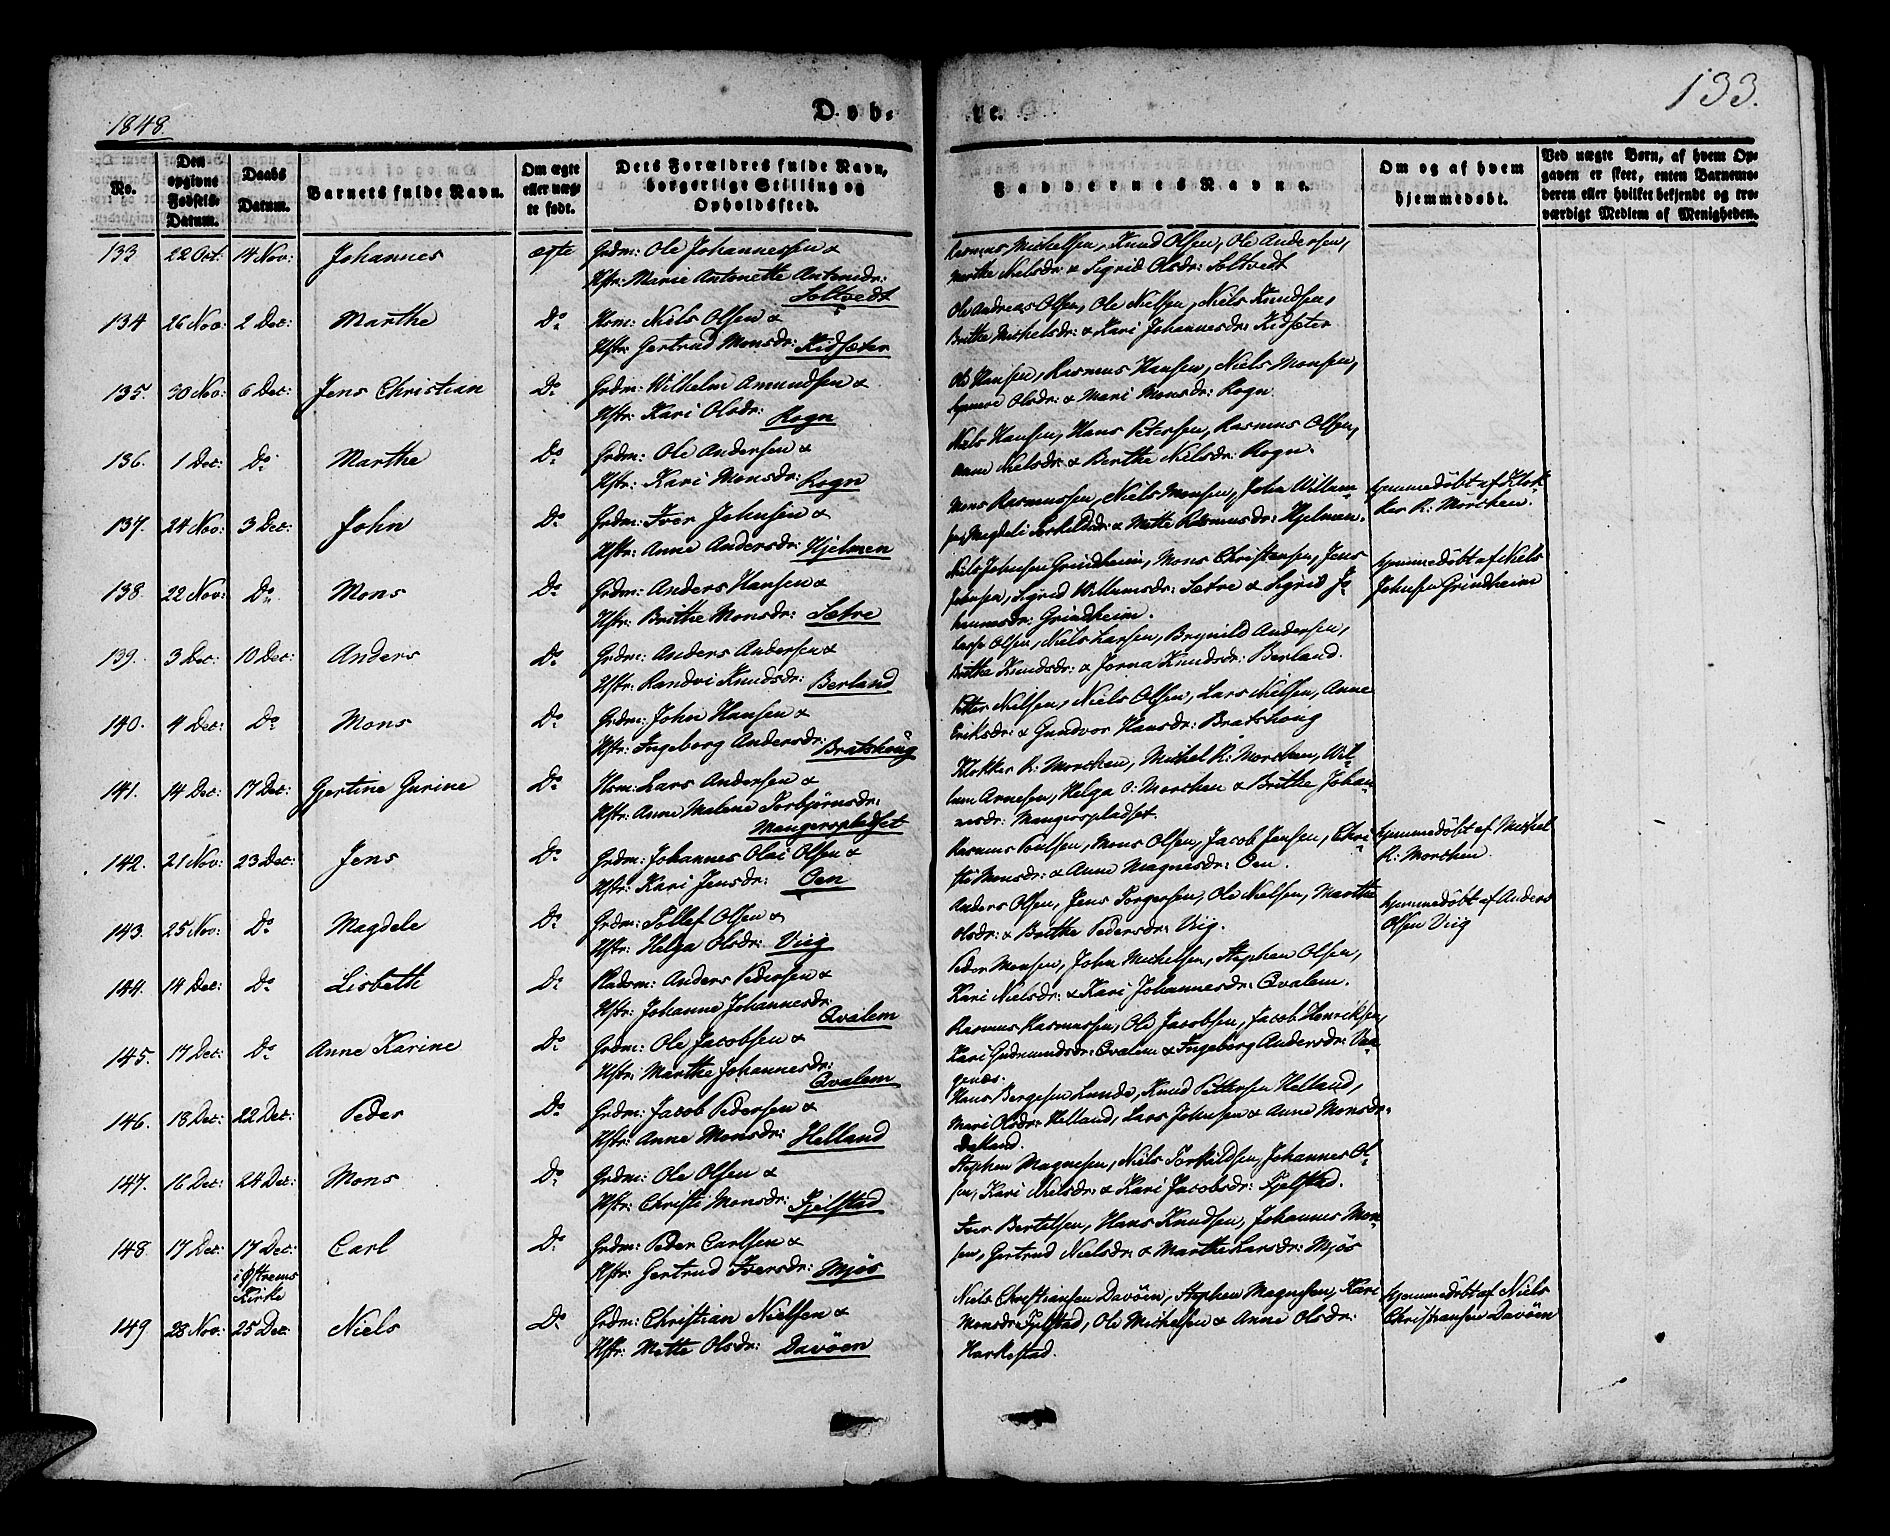 1848.
Døb-
te.
133.
No.
Den opgivne Fødsels-Datum.
Daabs Datum.
Barnets fulde Navn.
Om ægte eller uægte født.
Dets Forældres fulde Navn, borgerlige Stilling og Opholdssted.
Faddernes Navne.
Om og af hvem hjemmedøbt.
Ved uægte Børn, af hvem Opgaven er skeet, enten Barnemoderen eller hvilket bekjendt og troværdigt Medlem af Menigheden.
133 22 Oct: 14 Nov: Johannes ægte Grdm: Ole Johannessen &
Hstr: Marie Antonette Antonidr:
Soltvedt
Rasmus Michelsen, Knud Olsen, Ole Andersen,
Marthe Nielsdr: & Sigrid Olsdr: Soltvedt
134 26 Nov: 2 Dec: Marthe Do Hsm: Niels Olsen &
Hstr: Gertrud Monsdr: Kidsæter
Ole Andreas Olsen, Ole Nielsen, Niels Knudsen,
Brithe Michelsdr: & Kari Johannesdr: Kidsæter
135. 30 Nov: 6 Dec: Jens Christian Do Grdm: Wilhelm Amundsen &
Hstr: Kari Olsdr: Rogn
Ole Hansen, Rasmus Hansen, Niels Monsen,
Olsdr: & Mari Monsdr: Rogn.
136. 1 Dec: Do Marthe Do Grdm: Ole Andersen &
Hstr: Kari Monsdr: Rogn
Niels Hansen, Hans Petersen, Rasmus Olsen,
Anne Nielsdr: & Berthe Nielsdr: Rogn.
137. 24 Nov: 3 Dec: John Do Grdm: Iver Johnsen &
Hstr: Anne Andersdr: Hjelmen
Mons Rasmussen, Niels Monsen, John Willum-
sen, Magdeli Torkildsdr: & Mette Rasmusdr: Hjelmen.
hjemmedøbt af Klok-
ker R: Morchen.
138. 22 Nov: Do Mons Do Grdm: Anders Hansen &
Hstr: Brithe Monsdr: Sætre
Niels Johnsen Grindheim, Mons Christensen, Jens
Johnsen, Sigrid Willumsdr: Sætre & Sigrid Jo-
hannesdr: Grindheim.
hjemmedøbt af Niels
Johnsen Grindheim
139. 3 Dec: 10 Dec: Anders Do Grdm: Anders Andersen &
Hstr: Randvi Knudsdr: Berland
Lasse Olsen, Niels Larsen, Brynild Andersen,
Brithe Knudsdr: & Jorna Knudsdr: Berland.
140. 4 Dec: Do Mons Do Grdm: John Hansen &
Hstr: Ingeborg Andersdr: Bratshoug
Petter Nielsen, Niels Olsen, Lars Nielsen, Anne
Eriksdr: & Gundvor Hansdr: Bratshoug
141. 14 Dec: 17 Dec: Gjertine Gurine Do Hsm: Lars Andersen &
Hstr: Anne Malene Torbjørnsdr:
Mangerspladset
Klokker R: Morchen, Michel R: Morchen, Wil-
lum Arnesen, Helga O: Morchen & Brithe Johan-
nesdr: Mangerspladset.
142. 21 Nov: 23 Dec: Jens Do Grdm: Johannes Olai Olsen &
Hstr: Kari Jensdr: Oen
Rasmus Poulsen, Mons Olsen, Jacob Jensen, Chri-
sti Monsdr: & Anne Magnesdr: Oen.
hjemmedøbt af Michel
R: Morchen.
143. 25 Nov: Do Magdele Do Grdm: Tollef Olsen &
Hstr: Helga Olsdr: Viig
Anders Olsen, Jens Torgersen, Ole Nielsen, Marthe
Olsdr: & Brithe Pedersdr: Viig.
hjemmedøbt af Anders
Olsen Viig
144. 14 Dec: Do Lisbeth Do Pladsm: Anders Pedersen &
Hstr: Johanne Johannesdr:
Qvalem
Peder Monsen, John Michelsen, Stephen Olsen,
Kari Nielsdr: & Kari Johannesdr: Qvalem.
145. 17 Dec: Do Anne Karine Do Grdm: Ole Jacobsen &
Hstr: Marthe Johannesdr:
Qvalem
Rasmus Rasmussen, Ole Jacobsen, Jacob Henriksen,
Kari Gudmundsdr: Qvalem & Ingeborg Andersdr: Va-
genæs.
146. 18 Dec: 22 Dec: Peder Do Grdm: Jacob Pedersen &
Hstr: Anne Monsdr: Helland
Hans Bergesen Lunde, Knud Pettersen Helland,
Mari Olsdr: Helland, Lars Johnsen & Anne Monsdr:
147. 16 Dec: 24 Dec: Mons Do Grdm: Ole Olsen &
Hstr: Christi Monsdr: Fjelstad
Stephen Magnesen, Niels Torkildsen, Johannes Ol-
sen, Kari Nielsdr: & Kari Jacobsdr: Fjelstad.
148. 17 Dec: 17 Dec: Carl Do Grdm: Peder Carlsen &
i Østrems
Kirke
Hstr: Gertrud Iversdr: Mjøs
Iver Bertelsen, Hans Knudsen, Johannes Mon-
sen, Gertrud Nielsdr: & Marthe Larsdr: Mjøs
149 28 Nov: 25 Dec: Niels Do Grdm: Christian Nielsen &
Hstr: Mette Olsdr: Davøen
Niels Christiansen Davøen, Stephen Magnesen, Kari
Monsdr: Fjelstad, Ole Michelsen & Anne Olsdr:
Harkestad.
hjemmedøbt af Niels
Christiansen Davøen